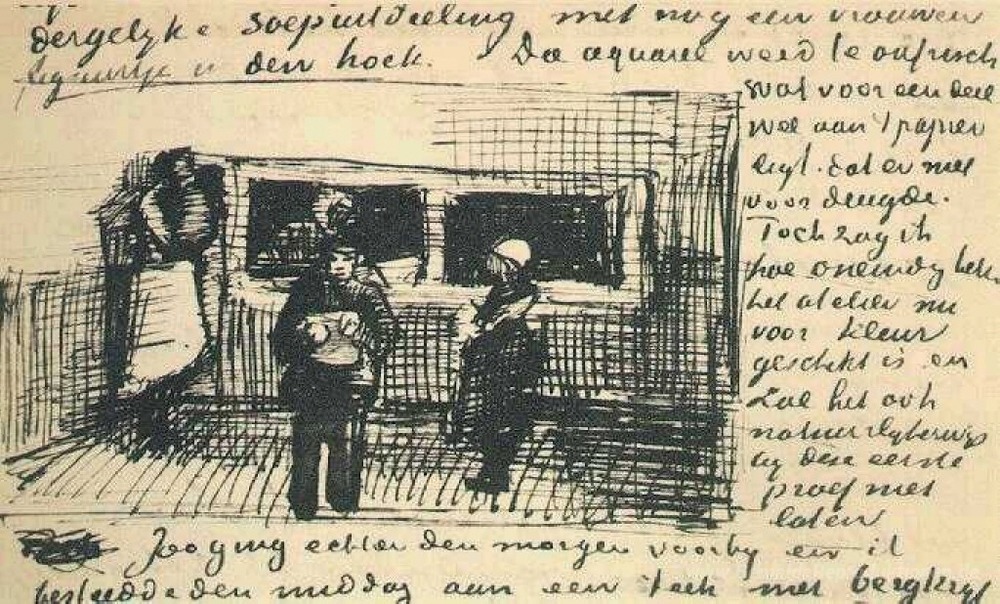 dergelyke soepuitdeeling met nog een vrouwen
figuurtje in den hoek. Die aquarel werd te onfrisch
wat voor een deel
wel aan 't papier
ligt. dat er niet
voor deugde.
Toch zag ik
hoe oneindig
het atelier nu
voor kleur
geschikt is en
zal het ook
natuurlykerwys
by deze eerste
proef niet
laten
Zoo ging echter den morgen voorby en ik
besteedde den middag aan een teek met bergkryt